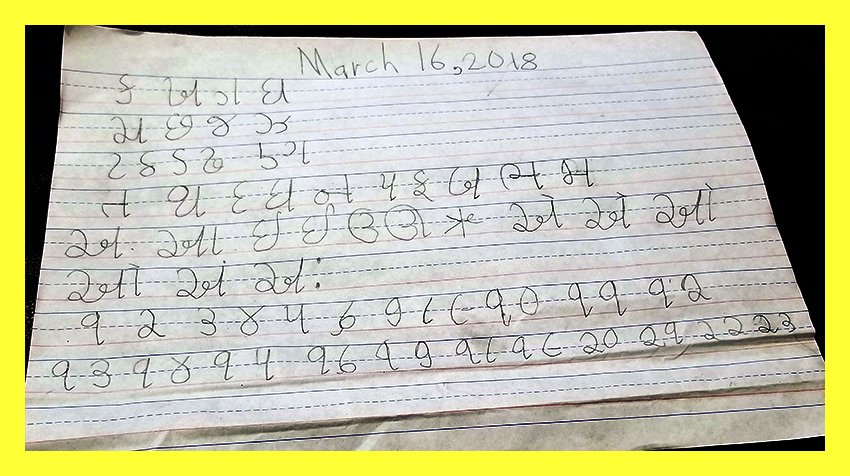 March 16, 2018
ક ખ ગ ઘ
ચ છ જ ઝ
ટ ઠ ડ ઢ ણ
ત થ દ ધ ન પ ફ બ ભ મ
અ આ ઇ ઈ ઉ ઊ ઋ એ ઐ ઓ
ઔ અં અઃ
૧ ૨ ૩ ૪ ૫ ૬ ૭ ૮ ૯ ૧૦ ૧૧ ૧૨
૧૩ ૧૪ ૧૫ ૧૬ ૧૭ ૧૮ ૧૯ ૨૦ ૨૧ ૨૨ ૨૩